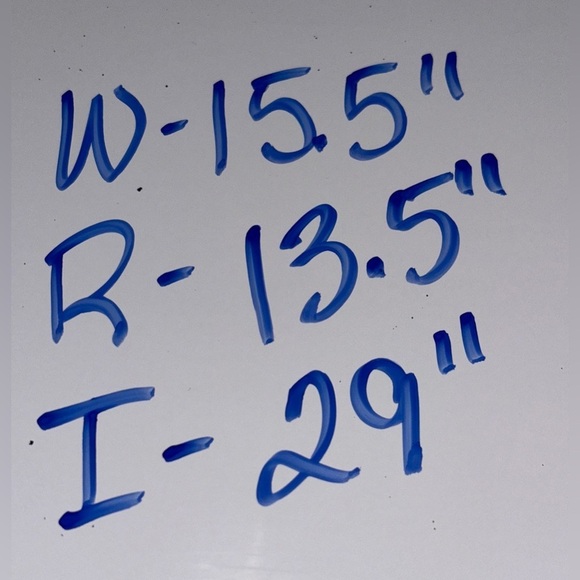 W-15.5"
R-13.5"
I-29"